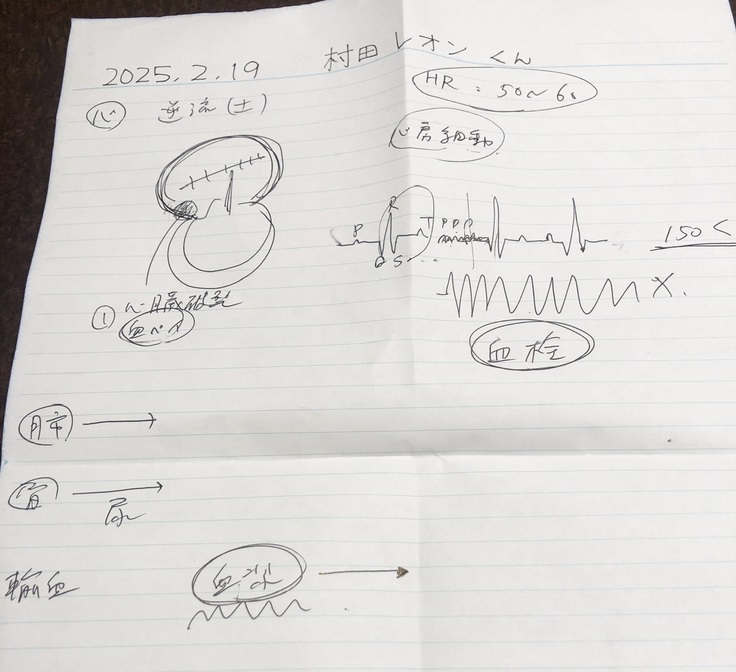 2025.2.19
村田レオンくん
HR：50〜60
心 逆流(±)
心房細動
P R T P P P
Q S
150<
① 心臓破裂
血ペタ
×.
血栓
肺 →
腎 →
尿
輸血
血漿 →